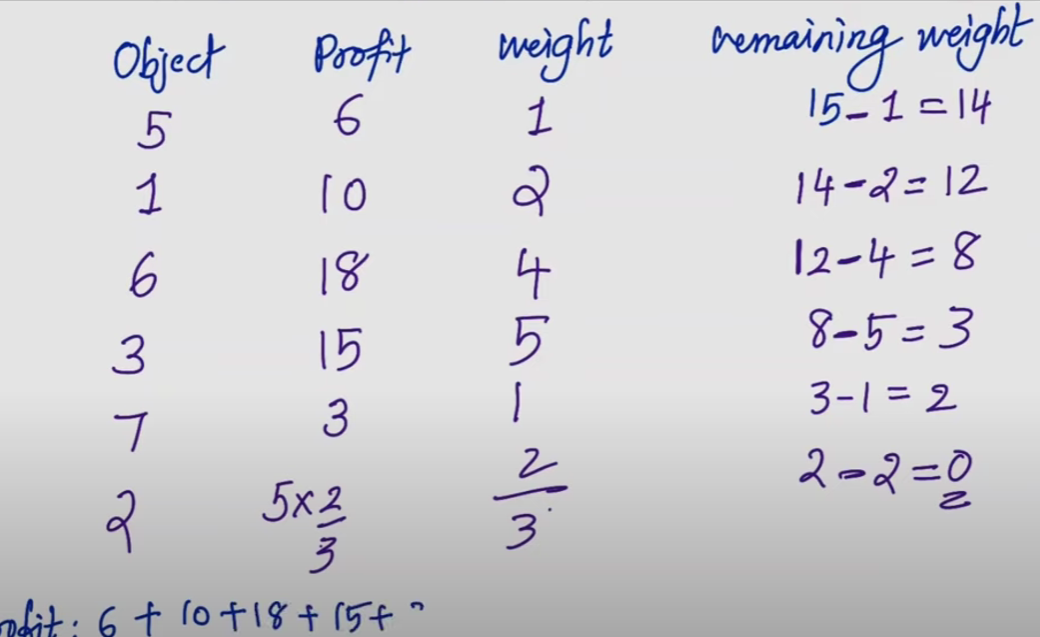 Object Profit weight remaining weight
5 6 1 15-1=14
1 10 2 14-2=12
6 18 4 12-4=8
3 15 5 8-5=3
7 3 1 3-1=2
2 5×2/3 2/3 2-2=0
ofit: 6+10+18+15+